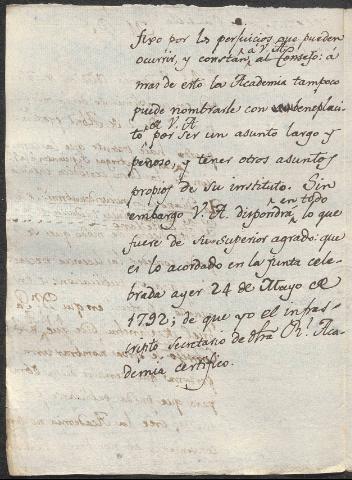 fixo por los perjuicios que pueden
ocurrir, y constan á V. A. al Consejo: á
mas de esto la Academia tampoco
puede nombrarle con beneplaci-
to de V. A. por ser un asunto largo y
penoso, y tener otros asuntos
propios de su instituto. Sin
embargo V. A. dispondrá en todo lo que
fuere de su superior agrado: que
es lo acordado en la junta cele-
brada ayer 24 de Mayo de
1792; de que yo el infras-
cripto secretario de dha Rl. Aca-
démia certifico.